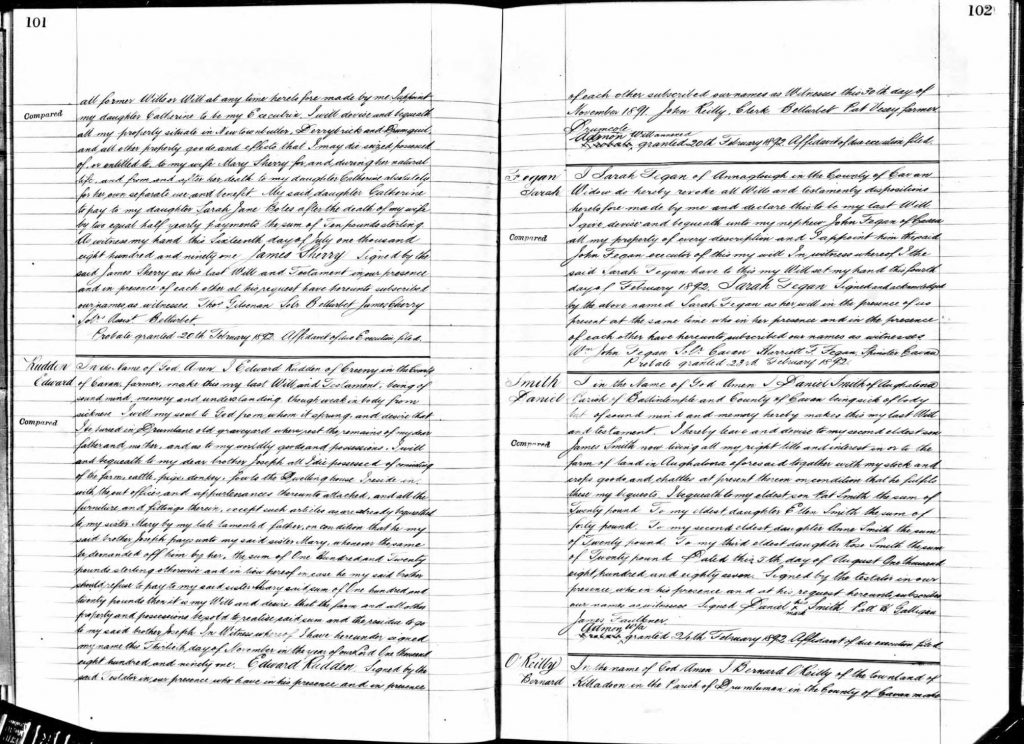 101
all former Wills or Will at any time heretofore made by me I appoint
Compared
my daughter Catherine to be my Executrix. I will devise and bequeath
all my property situate in Newtownbutler, Derrybrick and
and all other property goods and effects that I may die seized possessed
of, or entitled to, to my wife Mary Sherry for and, during her natural
life and from and after her death to my daughter Catherine absolutely
for her own separate use and benefit. My said daughter Catherine
to pay to my daughter Sarah Jane Boles after the death of my wife
by two equal half yearly payments the sum of Ten pounds sterling.
As witness my hand this Sixteenth day of July one thousand
eight hundred and ninety one James Sherry Signed by the
said James Sherry as his last Will and Testament in our presence
and in presence of each other at his request have hereunto subscribed
our names as witnesses. Thos. Solr. Belturbet James Sherry
Solrs Asst. Belturbet
Probate granted 20th February 1892. Affidavit of due Execution filed.
Rudden
Edward
In the Name of God Amen I Edward Rudden of Creeny in the County
of Cavan, farmer, make this my last Will and Testament, being of
sound mind, memory and understanding though weak in body from
sickness. I will my soul to God from whom it sprung, and desire that
Compared
I be buried in Drumlane old graveyard where rest the remains of my dear
father and mother, and as to my worldly goods and possessions. I will
and bequeath to my dear brother Joseph all I die possessed of consisting
of the farm, cattle, pigs, donkey, fowls the Dwelling house I reside in
with the out offices and appurtenances thereunto attached, and all the
furniture and fittings therein, except such articles as are already bequeathed
to my sister Mary by my late lamented father, on condition that he my
said brother Joseph pays unto my said sister Mary, whenever the same
be demanded off him by her, the sum of One Hundred and Twenty
pounds sterling otherwise and in lieu hereof in case he my said brother
should refuse to pay to my said sister Mary said sum of One hundred and
twenty pounds then it is my Will and desire that the farm and all other
property and possessions be sold to realise said sum and the residue to go
to my said brother Joseph. In Witness whereof I have hereunder signed
my name this Thirtieth day of November in the year of our Lord One thousand
eight hundred and ninety one. Edward Rudden. Signed by the
said Testator in our presence who have in his presence and in presence
102
of each other subscribed our names as Witnesses this 30th day of
November 1891. John Reilly, Clerk Belturbet Pat Vesey farmer
Drumcole
Admon Will annexed
Probate granted 20th February 1892 Affidavit of due execution filed.
Fegan
Sarah
I Sarah Fegan of in the County of Cavan
Widow do hereby revoke all Wills and testamenty dispositions
heretofore made by me and declare this to be my last Will
I give devise and bequeath unto my nephew John Fegan of Cavan
Compared
all my property of every description and I appoint him the said
John Fegan executor of this my will In witness whereof I the
said Sarah Fegan have to this my Will set my hand this fourth
day of February 1892. Sarah Fegan Signed and acknowledged
by the above named Sarah Fegan as her will in the presence of us
present at the same time who in her presence and in the presence
of each other have hereunto subscribed our names as witnesses
Wm John Fegan Solr Cavan Harriett F. Fegan, Spinster Cavan
Probate granted 23rd February 1892.
Smith
Daniel
I in the Name of God Amen I Daniel Smith of Aughalona
Parish of Castleterra and County of Cavan being sick of body
but of sound mind and memory hereby makes this my last Will
and testament. I hereby leave and devise to my second eldest son
Compared
James Smith now living all my right title and interest in or to the
farm of land in Aughalona aforesaid together with my stock and
crops goods and chattles at present thereon on condition that he fulfils
these my bequests. I bequeath to my eldest son Pat Smith the sum of
Twenty pound. To my eldest daughter Ellen Smith the sum of
forty pound. To my second eldest daughter Anne Smith the sum
of Twenty pound. To my third eldest daughter Rose Smith the sum
of Twenty pound. Dated this 5th day of August One thousand
eight hundred and eighty seven. Signed by the testator in our
presence, who in his presence and at his request hereunto subscribes
our names as witnesses Signed Daniel his mark Smith Patt Galligan
James Faulkner
Admon W/a
Probate granted 24th February 1892 Affidavit of due execution filed
O'Reilly
Bernard
In the name of God Amen I Bernard O'Reilly of the townland of
Killadoon in the Parish of Drumlumman in the County of Cavan make